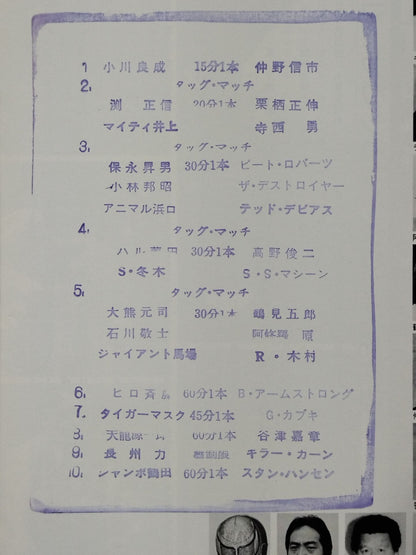 1. 小川良成 15分1本 仲野信市
2. タッグ・マッチ
渕 正信 20分1本 栗栖正伸
マイティ井上 寺西 勇
3. タッグ・マッチ
保永昇男 30分1本 ピート・ロバーツ
小林邦昭 ザ・デストロイヤー
アニマル浜口 テッド・デビアス
4. タッグ・マッチ
ハル薗田 30分1本 高野俊二
S・冬木 S・S・マシーン
5. タッグ・マッチ
大熊元司 30分1本 鶴見五郎
石川敬士 阿修羅 原
ジャイアント馬場 R・木村
6. ヒロ斉藤 60分1本 B・アームストロング
7. タイガーマスク 45分1本 G・カブキ
8. 天龍源一郎 60分1本 谷津嘉章
9. 長州 力 キラー・カーン
10. ジャンボ鶴田 60分1本 スタン・ハンセン